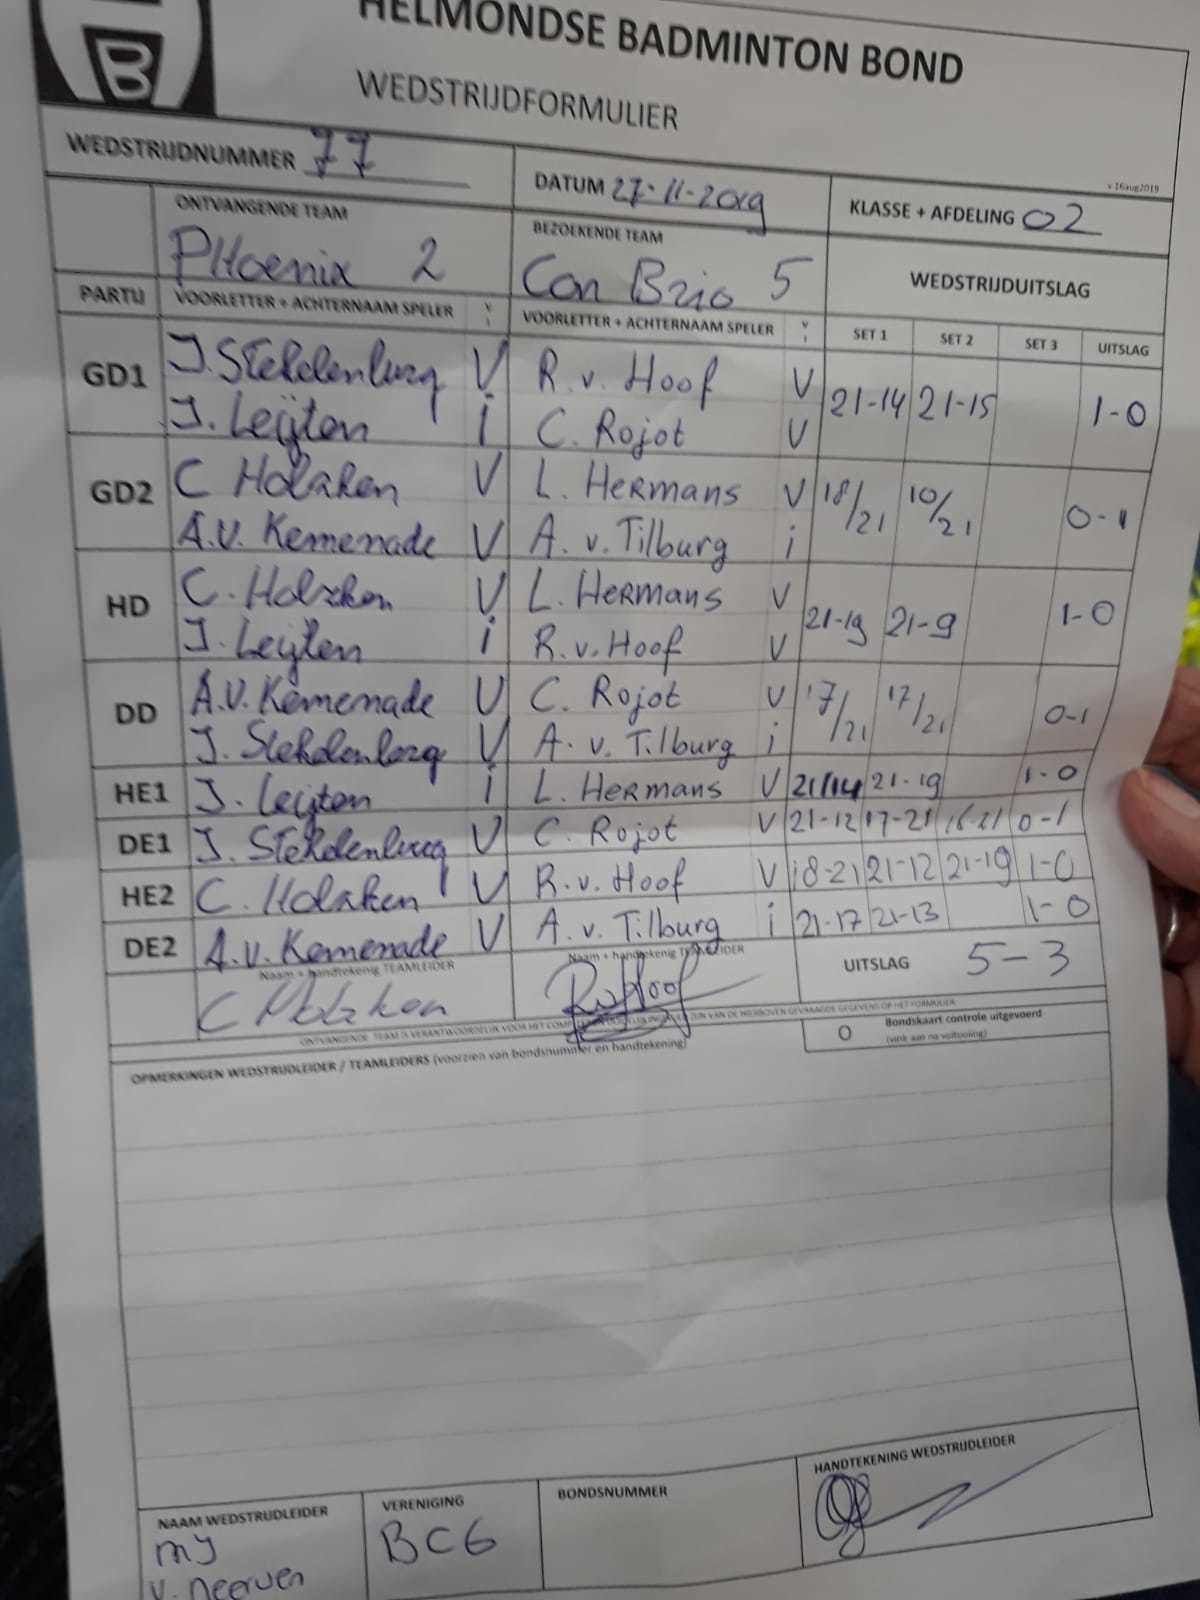 HELMONDSE BADMINTON BOND
WEDSTRIJDFORMULIER
v 16aug2019
WEDSTRIJDNUMMER 77 DATUM 27-11-2019 KLASSE + AFDELING 02
ONTVANGENDE TEAM BEZOEKENDE TEAM WEDSTRIJDUITSLAG
PHoenix 2 Con Brio 5
PARTIJ VOORLETTER + ACHTERNAAM SPELER V I VOORLETTER + ACHTERNAAM SPELER V I SET 1 SET 2 SET 3 UITSLAG
GD1 J. Stekelenburg V R. v. Hoof V 21-14 21-15 1-0
J. Leijten i C. Rojot V
GD2 C Holzken V L. Hermans V 18/21 10/21 0-1
A.V. Kemenade V A. v. Tilburg i
HD C. Holzken V L. Hermans V 21-19 21-9 1-0
J. Leijten i R. v. Hoof V
DD A.V. Kemenade V C. Rojot V 17/21 17/21 0-1
J. Stekelenburg V A. v. Tilburg i
HE1 J. Leijten i L. Hermans V 21/14 21-19 1-0
DE1 J. Stekelenburg V C. Rojot V 21-12 17-21 16-21 0-1
HE2 C. Holzken V R. v. Hoof V 18-21 21-12 21-19 1-0
DE2 A.v. Kemenade V A. v. Tilburg i 21-17 21-13 1-0
Naam + handtekenig TEAMLEIDER Naam + handtekenig TEAMLEIDER UITSLAG 5-3
C Holzken RvHoof
ONTVANGENDE TEAM IS VERANTWOORDELIJK VOOR HET ZIJN VAN DE HIERBOVEN GEVRAAGDE GEGEVENS OP HET FORMULIER
O Bondskaart controle uitgevoerd
(vink aan na voltooiing)
OPMERKINGEN WEDSTRIJDLEIDER / TEAMLEIDERS (voorzien van bondsnummer en handtekening)
NAAM WEDSTRIJDLEIDER VERENIGING BONDSNUMMER HANDTEKENING WEDSTRIJDLEIDER
MJ BCG
v. neerven